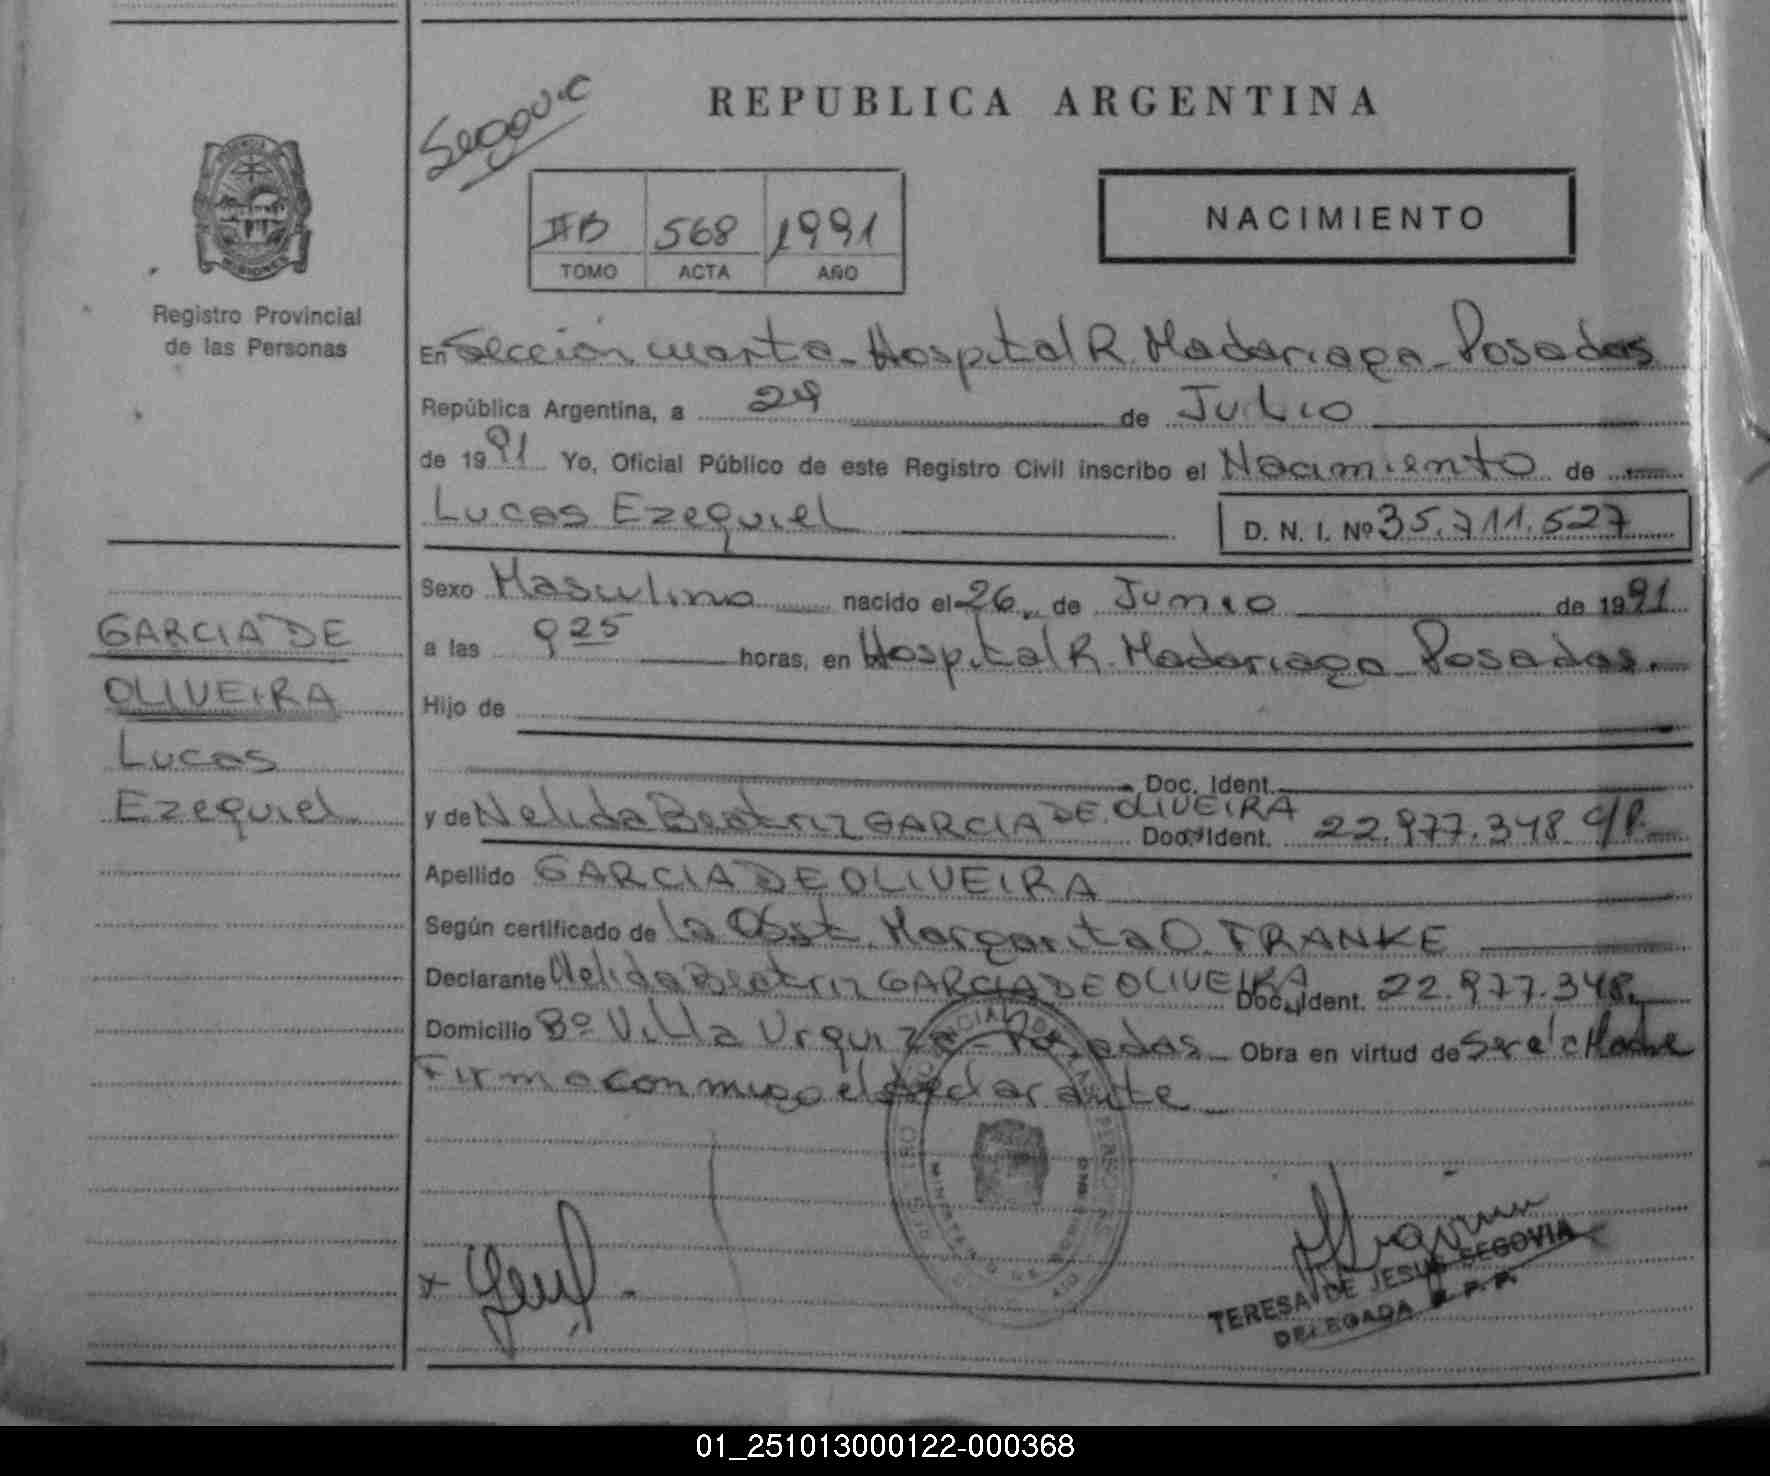 REPUBLICA ARGENTINA
IIB 568 1991
TOMO ACTA AÑO
NACIMIENTO
MISIONES
Registro Provincial
de las Personas
En Sección cuarta - Hospital R. Madariaga - Posadas
República Argentina, a 29 de Julio
de 1991 Yo, Oficial Público de este Registro Civil inscribo el Nacimiento de
Lucas Ezequiel D. N. I. Nº 35.711.527
Sexo Masculino nacido el 26 de Junio de 1991
a las 9 25 horas, en Hospital R. Madariaga Posadas.
Hijo de
Doc. Ident.
y de Nelida Beatriz GARCIA DE OLIVEIRA Doc. Ident. 22.977.348 C/P.
Apellido GARCIA DE OLIVEIRA
Según certificado de la Obst. Margarita O. FRANKE
Declarante Nelida Beatriz GARCIA DE OLIVEIRA Doc. Ident. 22.977.348.
Domicilio Bº Villa Urquiza - Posadas - Obra en virtud de Ser el Madre
Firma conmigo el declarante
GARCIA DE
OLIVEIRA
Lucas
Ezequiel
TERESA DE JESUS SEGOVIA
DELEGADA R. P. P.
01_251013000122-000368